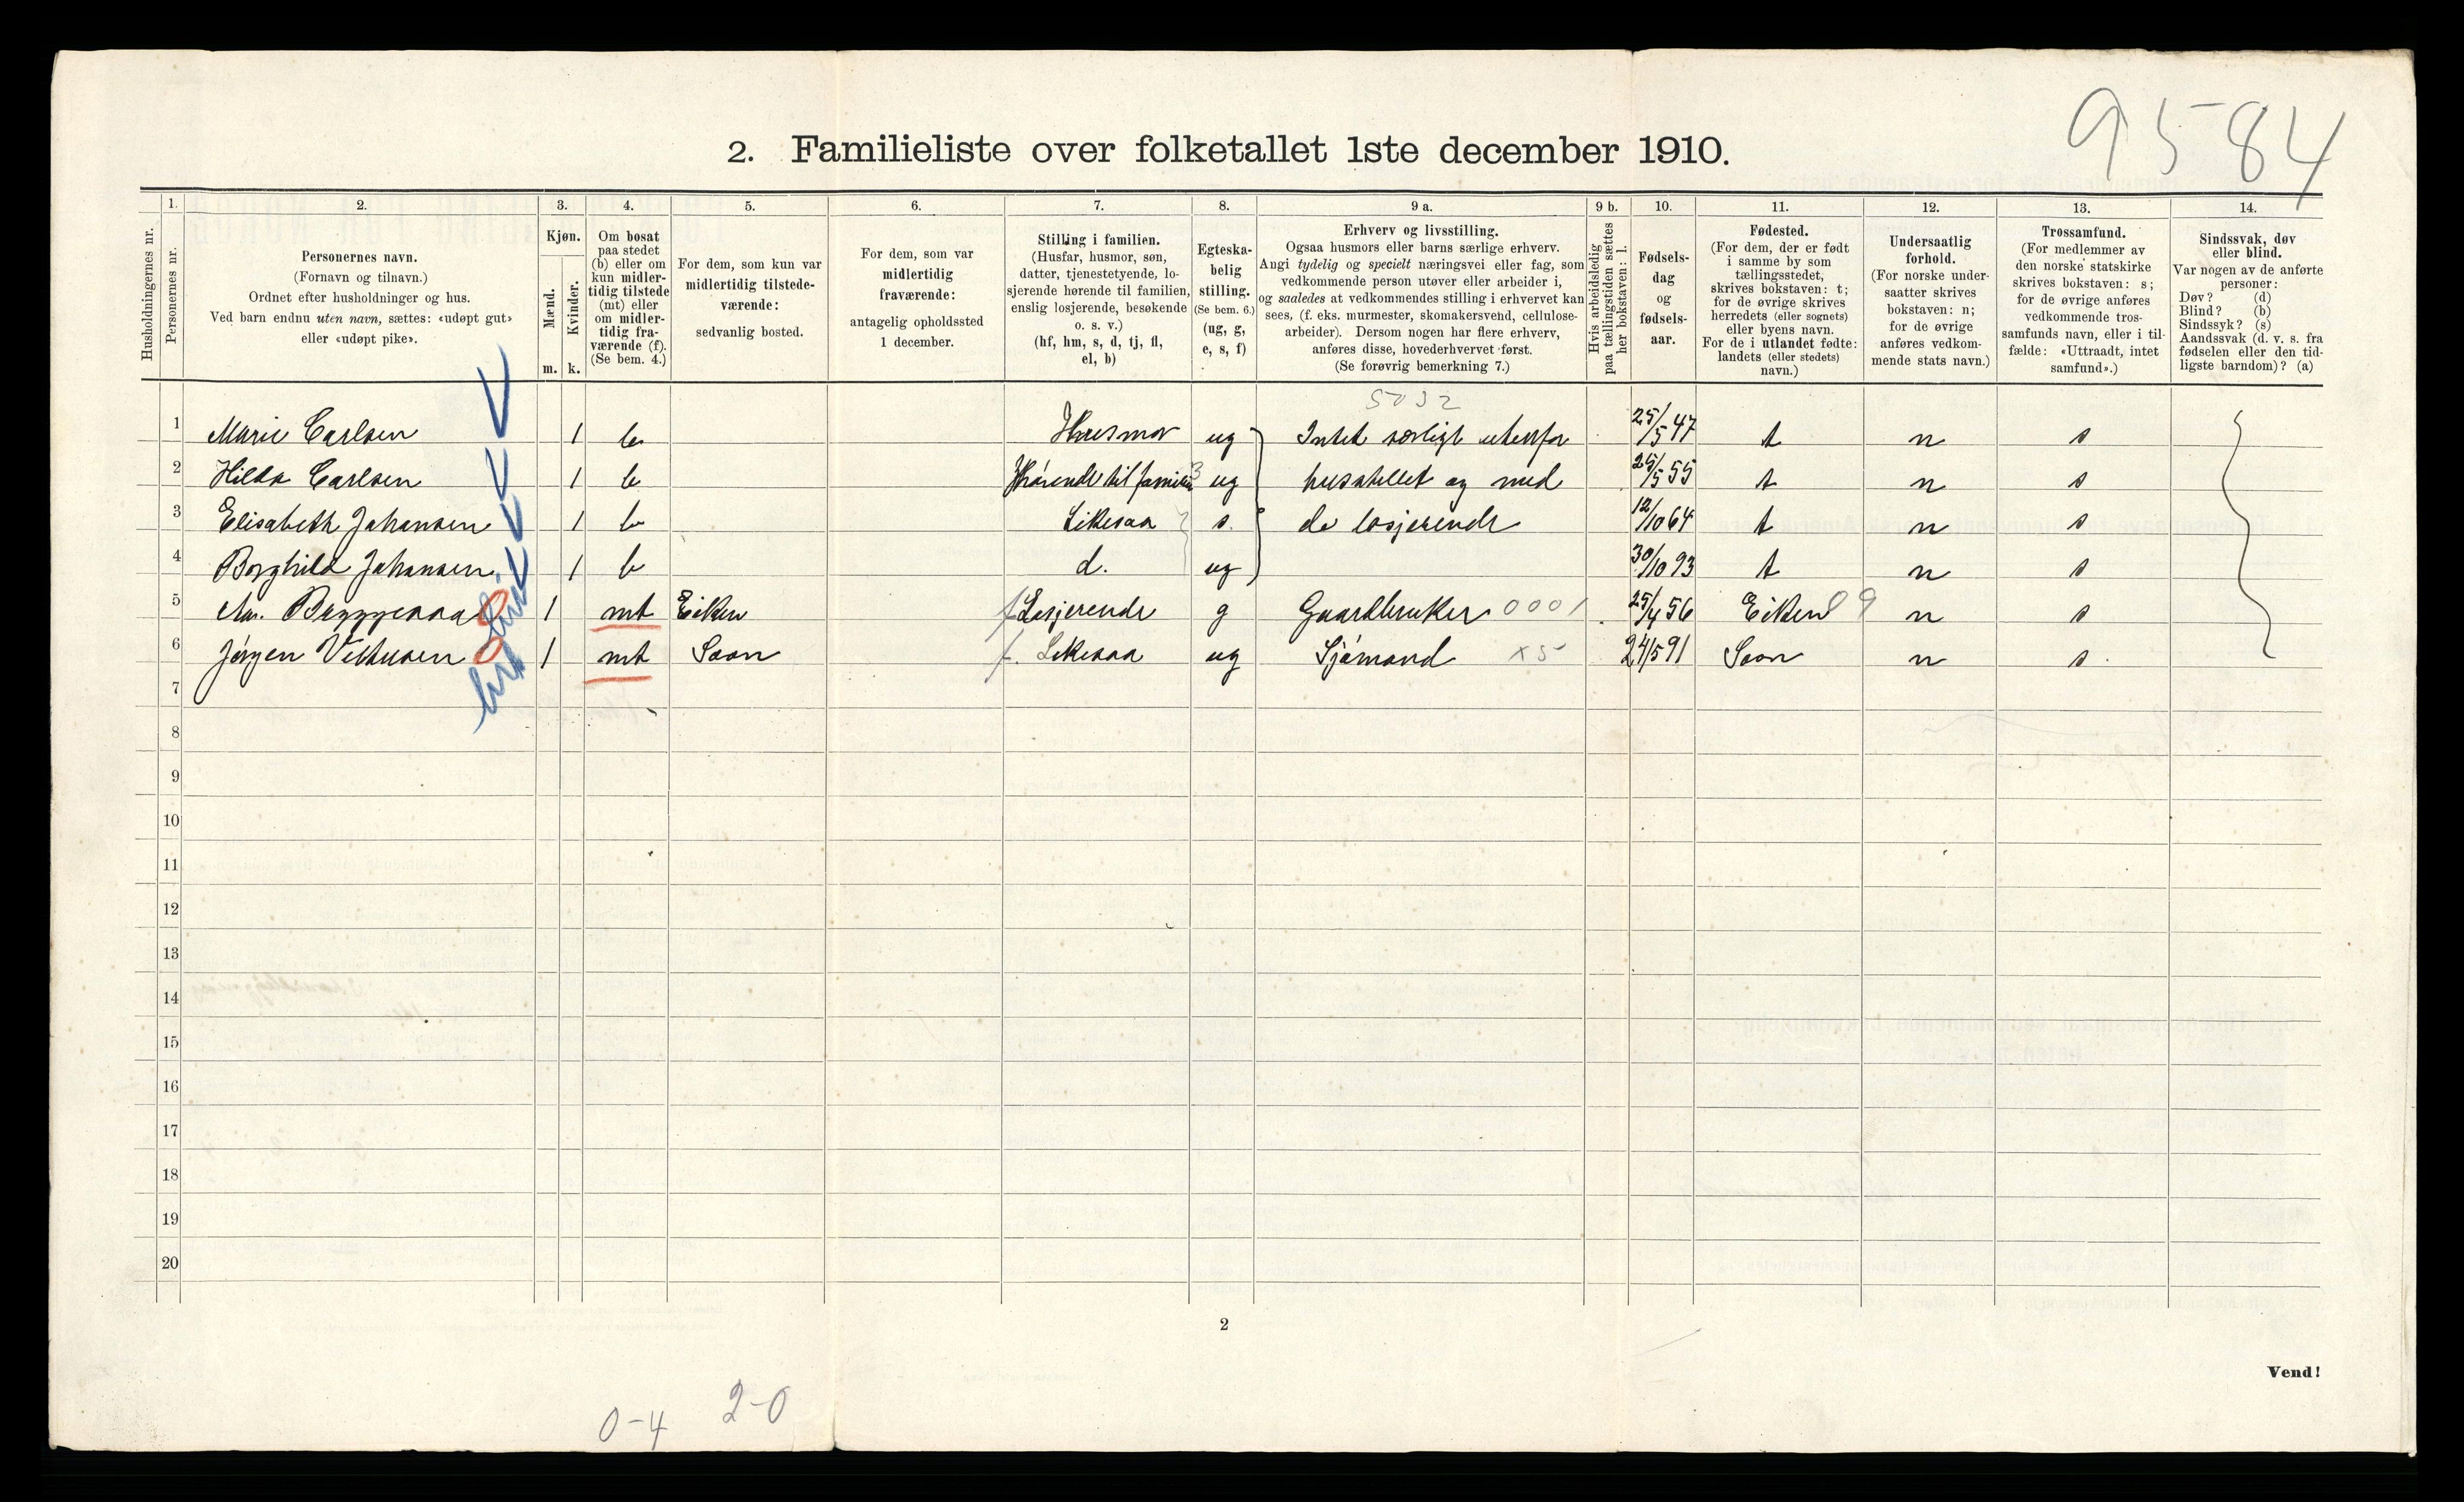 9584
2. Familieliste over folketallet 1ste december 1910.
Husholdningernes nr.
1. Personernes nr.
2. Personernes navn. (Fornavn og tilnavn.) Ordnet efter husholdninger og hus. Ved barn endnu uten navn, sættes: «udøpt gut» eller «udøpt pike».
3. Kjøn. Mænd. m. Kvinder. k.
4. Om bosat paa stedet (b) eller om kun midlertidig tilstede (mt) eller om midlertidig fraværende (f). (Se bem. 4.)
5. For dem, som kun var midlertidig tilstedeværende: sedvanlig bosted.
6. For dem, som var midlertidig fraværende: antagelig opholdssted 1 december.
7. Stilling i familien. (Husfar, husmor, søn, datter, tjenestetyende, losjerende hørende til familien, enslig losjerende, besøkende o. s. v.) (hf, hm, s, d, tj, fl, el, b)
8. Egteskabelig stilling. (Se bem. 6.) (ug, g, e, s, f)
9 a. Erhverv og livsstilling. Ogsaa husmors eller barns særlige erhverv. Angi tydelig og specielt næringsvei eller fag, som vedkommende person utøver eller arbeider i, og saaledes at vedkommendes stilling i erhvervet kan sees, (f. eks. murmester, skomakersvend, cellulosearbeider). Dersom nogen har flere erhverv, anføres disse, hovederhvervet først. (Se forøvrig bemerkning 7.)
9 b. Hvis arbeidsledig paa tællingstiden sættes her bokstaven: l.
10. Fødselsdag og fødselsaar.
11. Fødested. (For dem, der er født i samme by som tællingsstedet, skrives bokstaven: t; for de øvrige skrives herredets (eller sognets) eller byens navn. For de i utlandet fødte: landets (eller stedets) navn.)
12. Undersaatlig forhold. (For norske undersaatter skrives bokstaven: n; for de øvrige anføres vedkommende stats navn.)
13. Trossamfund. (For medlemmer av den norske statskirke skrives bokstaven: s; for de øvrige anføres vedkommende trossamfunds navn, eller i tilfælde: «Uttraadt, intet samfund».)
14. Sindssvak, døv eller blind. Var nogen av de anførte personer: Døv? (d) Blind? (b) Sindssyk? (s) Aandssvak (d. v. s. fra fødselen eller den tidligste barndom)? (a)
5032
1 Marie Carlsen 1 b Husmor ug Intet særligt utenfor 25/5 47 t n s
2 Hilda Carlsen 1 b Hørende til familien 3 ug husstellet og med 25/5 55 t n s
3 Elisabeth Johansen 1 b Likesaa s. de losjerende 12/10 64 t n s
4 Borghild Johansen. 1 b d. ug 30/10 93 t n s
5 1 mt Eiken f Losjerende g Gaardbruker 0001 25/4 56 Eiken 9 n s
6 Jørgen 1 mt Soon f. Likesaa ug Sjømand x5 24/5 91 Soon n s.
7
8
9
10
11
12
13
14
15
16
17
18
19
20
2
Vend!
0-4 2-0